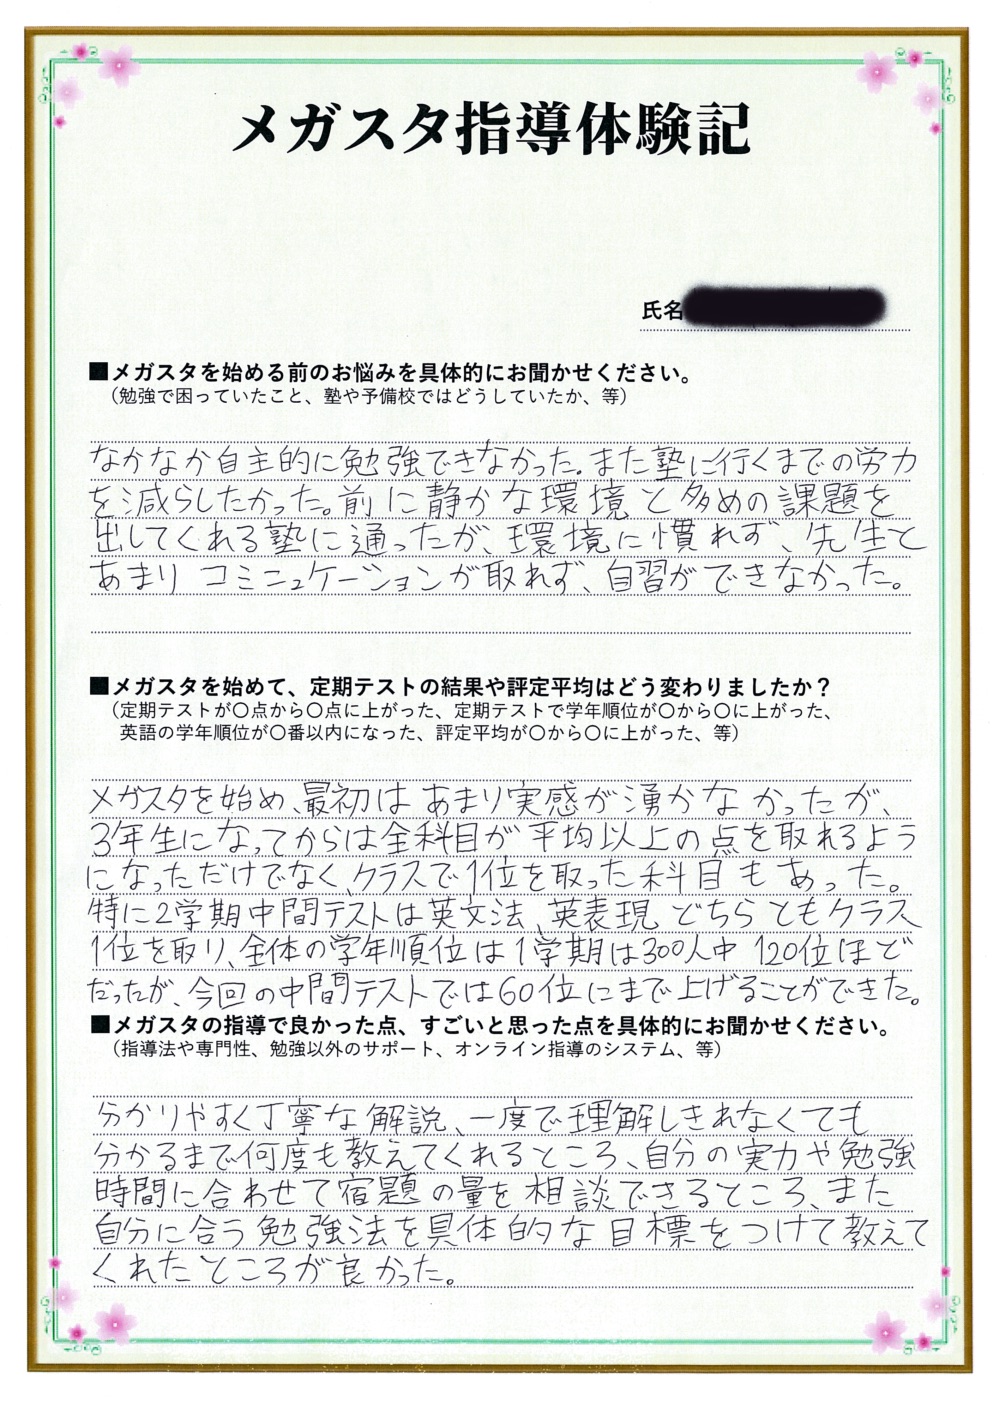 メガスタ指導体験記
氏名
■メガスタを始める前のお悩みを具体的にお聞かせください。
（勉強で困っていたこと、塾や予備校ではどうしていたか、等）
なかなか自主的に勉強できなかった。また塾に行くまでの労力
を減らしたかった。前に静かな環境と多めの課題を
出してくれる塾に通ったが、環境に慣れず、先生と
あまりコミニュケーションが取れず、自習ができなかった。
■メガスタを始めて、定期テストの結果や評定平均はどう変わりましたか？
（定期テストが〇点から〇点に上がった、定期テストで学年順位が〇から〇に上がった、
英語の学年順位が〇番以内になった、評定平均が〇から〇に上がった、等）
メガスタを始め、最初はあまり実感が湧かなかったが、
3年生になってからは全科目が平均以上の点を取れるよう
になっただけでなく、クラスで1位を取った科目もあった。
特に2学期中間テストは英文法、英表現どちらともクラス
1位を取り、全体の学年順位は1学期は300人中120位ほど
だったが、今回の中間テストでは60位にまで上げることができた。
■メガスタの指導で良かった点、すごいと思った点を具体的にお聞かせください。
（指導法や専門性、勉強以外のサポート、オンライン指導のシステム、等）
分かりやすく丁寧な解説、一度で理解しきれなくても
分かるまで何度も教えてくれるところ、自分の実力や勉強
時間に合わせて宿題の量を相談できるところ、また
自分に合う勉強法を具体的な目標をつけて教えて
くれたところが良かった。